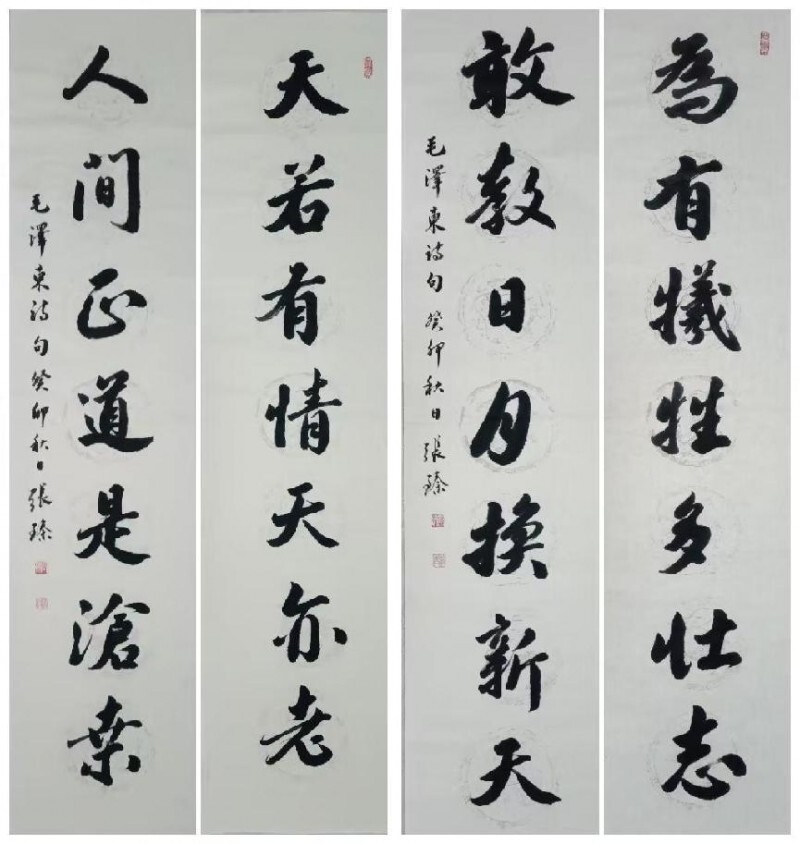 為有犧牲多壯志
敢教日月換新天
毛澤東詩句 癸卯秋日 張臻
天若有情天亦老
人間正道是滄桑
毛澤東詩句 癸卯秋日 張臻